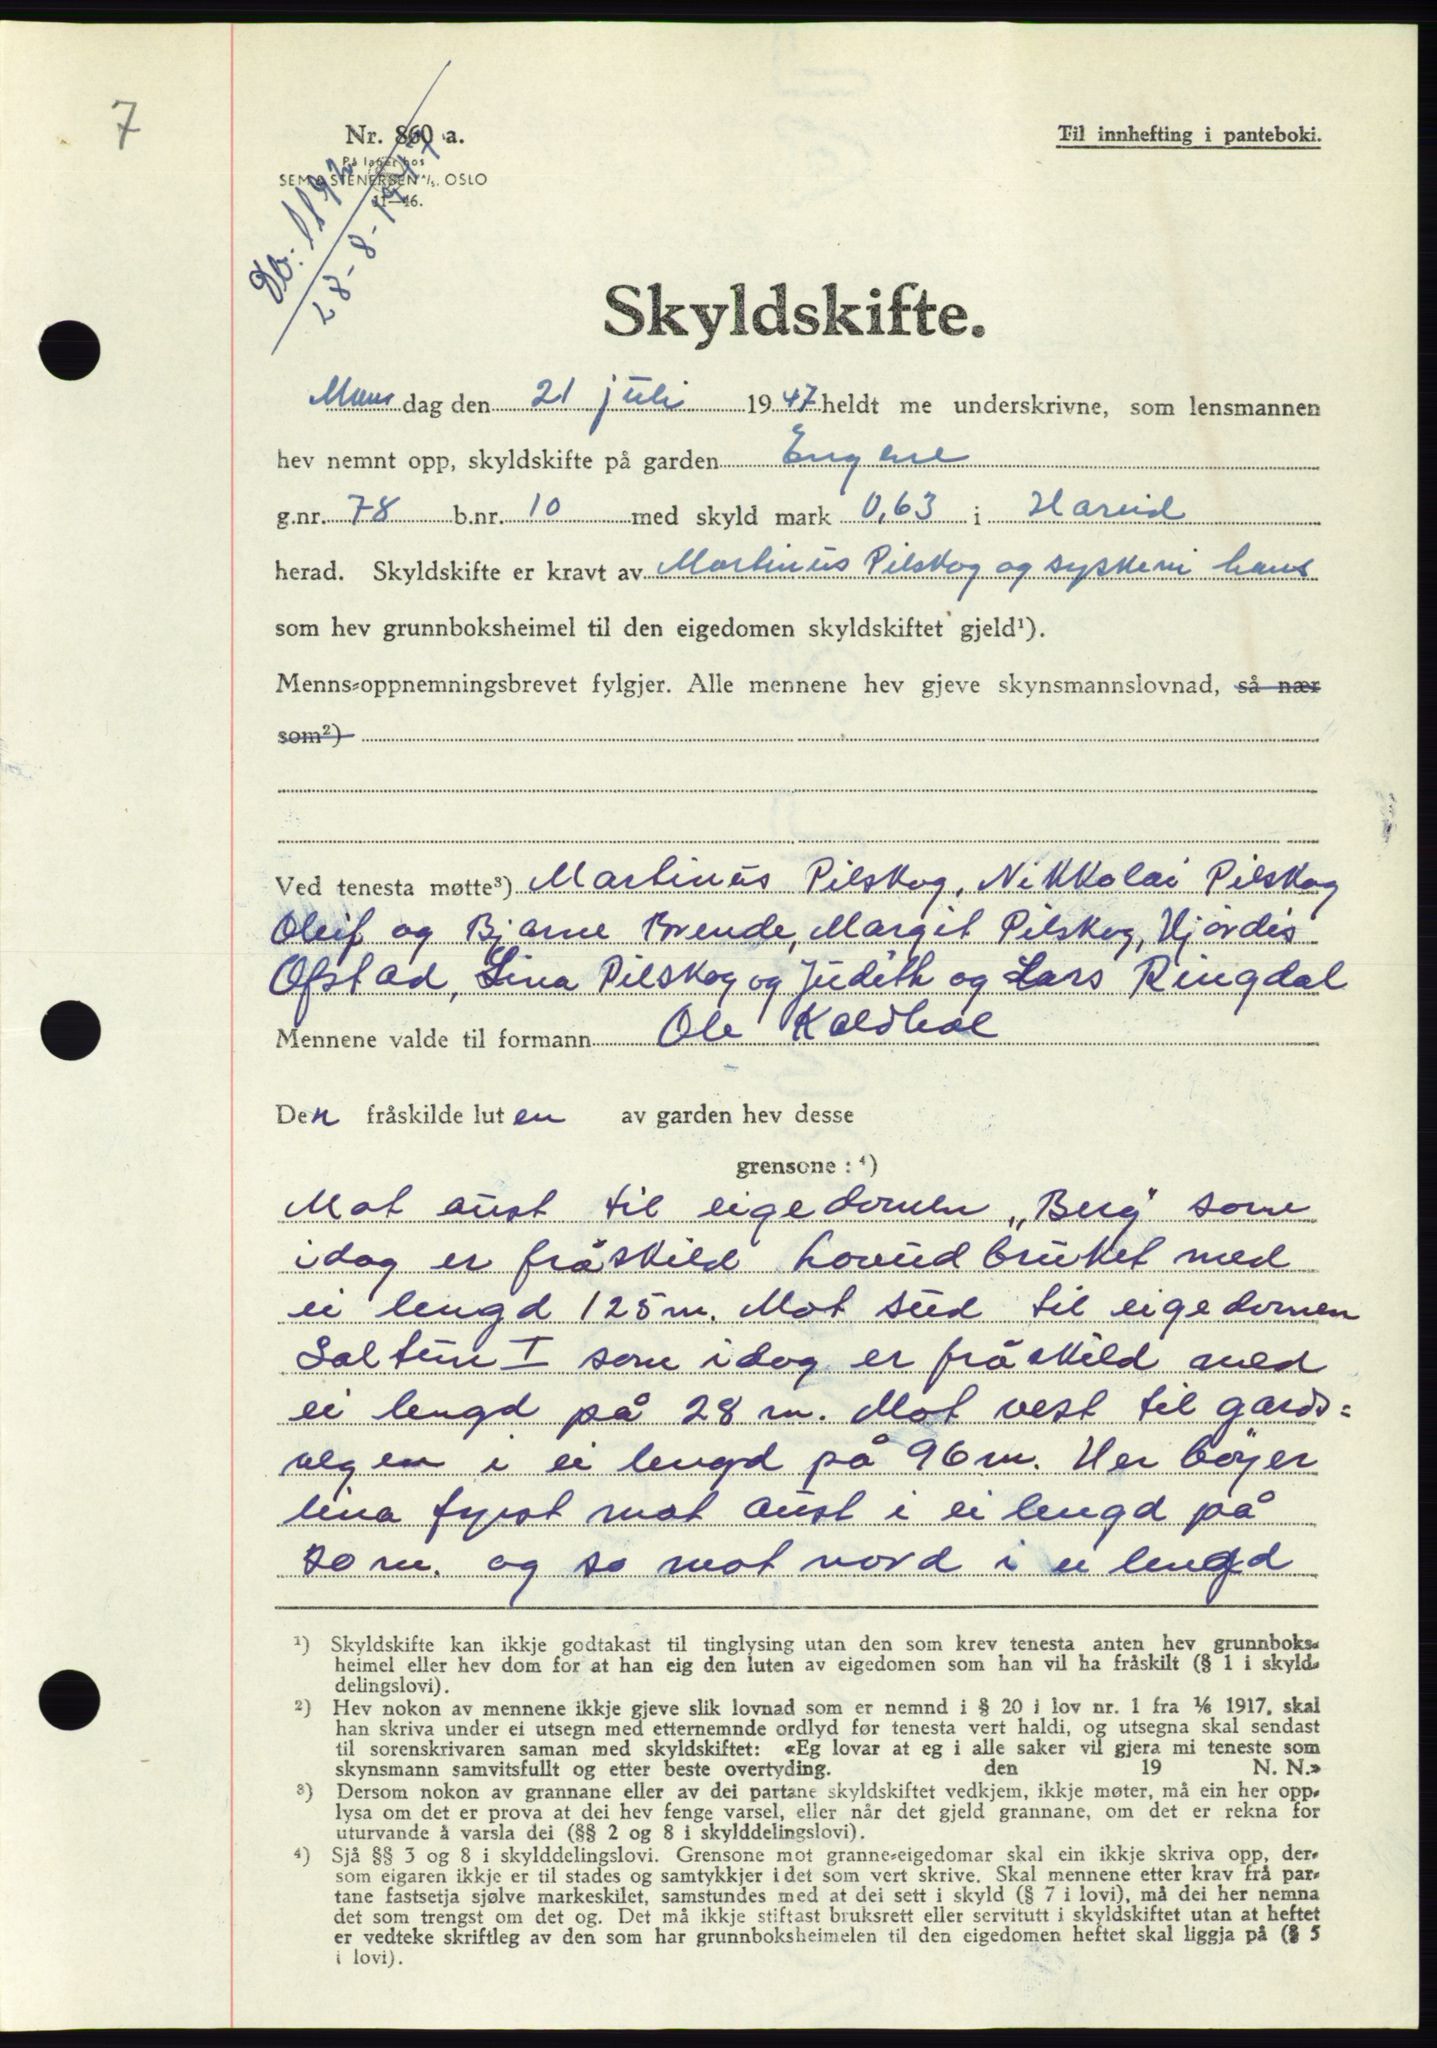 7
Nr. 860 a.
På lager hos
SEM & STENERSEN A/S. OSLO
11—46.
Til innhefting i panteboki.
28-8-1947
Skyldskifte.
Mandag den 21 juli 1947 heldt me underskrivne, som lensmannen
hev nemnt opp, skyldskifte på garden Engene
g.nr. 78 b.nr. 10 med skyld mark 0,63 i Hareid
herad. Skyldskifte er kravt av Martinus Pilskog og syskeni hans
som hev grunnboksheimel til den eigedomen skyldskiftet gjeld¹).
Menns-oppnemningsbrevet fylgjer. Alle mennene hev gjeve skynsmannslovnad, så nær
som²)
Ved tenesta møtte³) Martinus Pilskog, Nikkolai Pilskog
Oleif og Bjarne Brende, Margit Pilskog, Hjördis
Ofstad, Lina Pilskog og Judith og Lars Ringdal
Mennene valde til formann Ole Kaldhol
Den fråskilde luten av garden hev desse
grensone : ⁴)
Mot aust til eigedomen „Berg" som
idag er fråskild hovudbruket med
ei lengd 125 m. Mot sud til eigedomen
Soltun I som idag er fråskild med
ei lengd på 28 m. Mot vest til gards=
velgen i ei lengd på 96 m. Her böyer
lina fyrst mot aust i ei lengd på
m. og so mot nord i ei lengd
¹) Skyldskifte kan ikkje godtakast til tinglysing utan den som krev tenesta anten hev grunnboks-
heimel eller hev dom for at han eig den luten av eigedomen som han vil ha fråskilt (§ 1 i skyld-
delingslovi).
²) Hev nokon av mennene ikkje gjeve slik lovnad som er nemnd i § 20 i lov nr. 1 fra ⅙ 1917, skal
han skriva under ei utsegn med etternemnde ordlyd før tenesta vert haldi, og utsegna skal sendast
til sorenskrivaren saman med skyldskiftet: «Eg lovar at eg i alle saker vil gjera mi teneste som
skynsmann samvitsfullt og etter beste overtyding. den 19 N. N.»
³) Dersom nokon av grannane eller av dei partane skyldskiftet vedkjem, ikkje møter, må ein her opp-
lysa om det er prova at dei hev fenge varsel, eller når det gjeld grannane, om det er rekna for
uturvande å varsla dei (§§ 2 og 8 i skylddelingslovi).
⁴) Sjå §§ 3 og 8 i skylddelingslovi. Grensone mot granne-eigedomar skal ein ikkje skriva opp, der-
som eigaren ikkje er til stades og samtykkjer i det som vert skrive. Skal mennene etter krav frå par-
tane fastsetja sjølve markeskilet, samstundes med at dei sett i skyld (§ 7 i lovi), må dei her nemna
det som trengst om det og. Det må ikkje stiftast bruksrett eller servitutt i skyldskiftet utan at heftet
er vedteke skriftleg av den som har grunnboksheimelen til den eigedomen heftet skal liggja på (§ 5
i lovi).